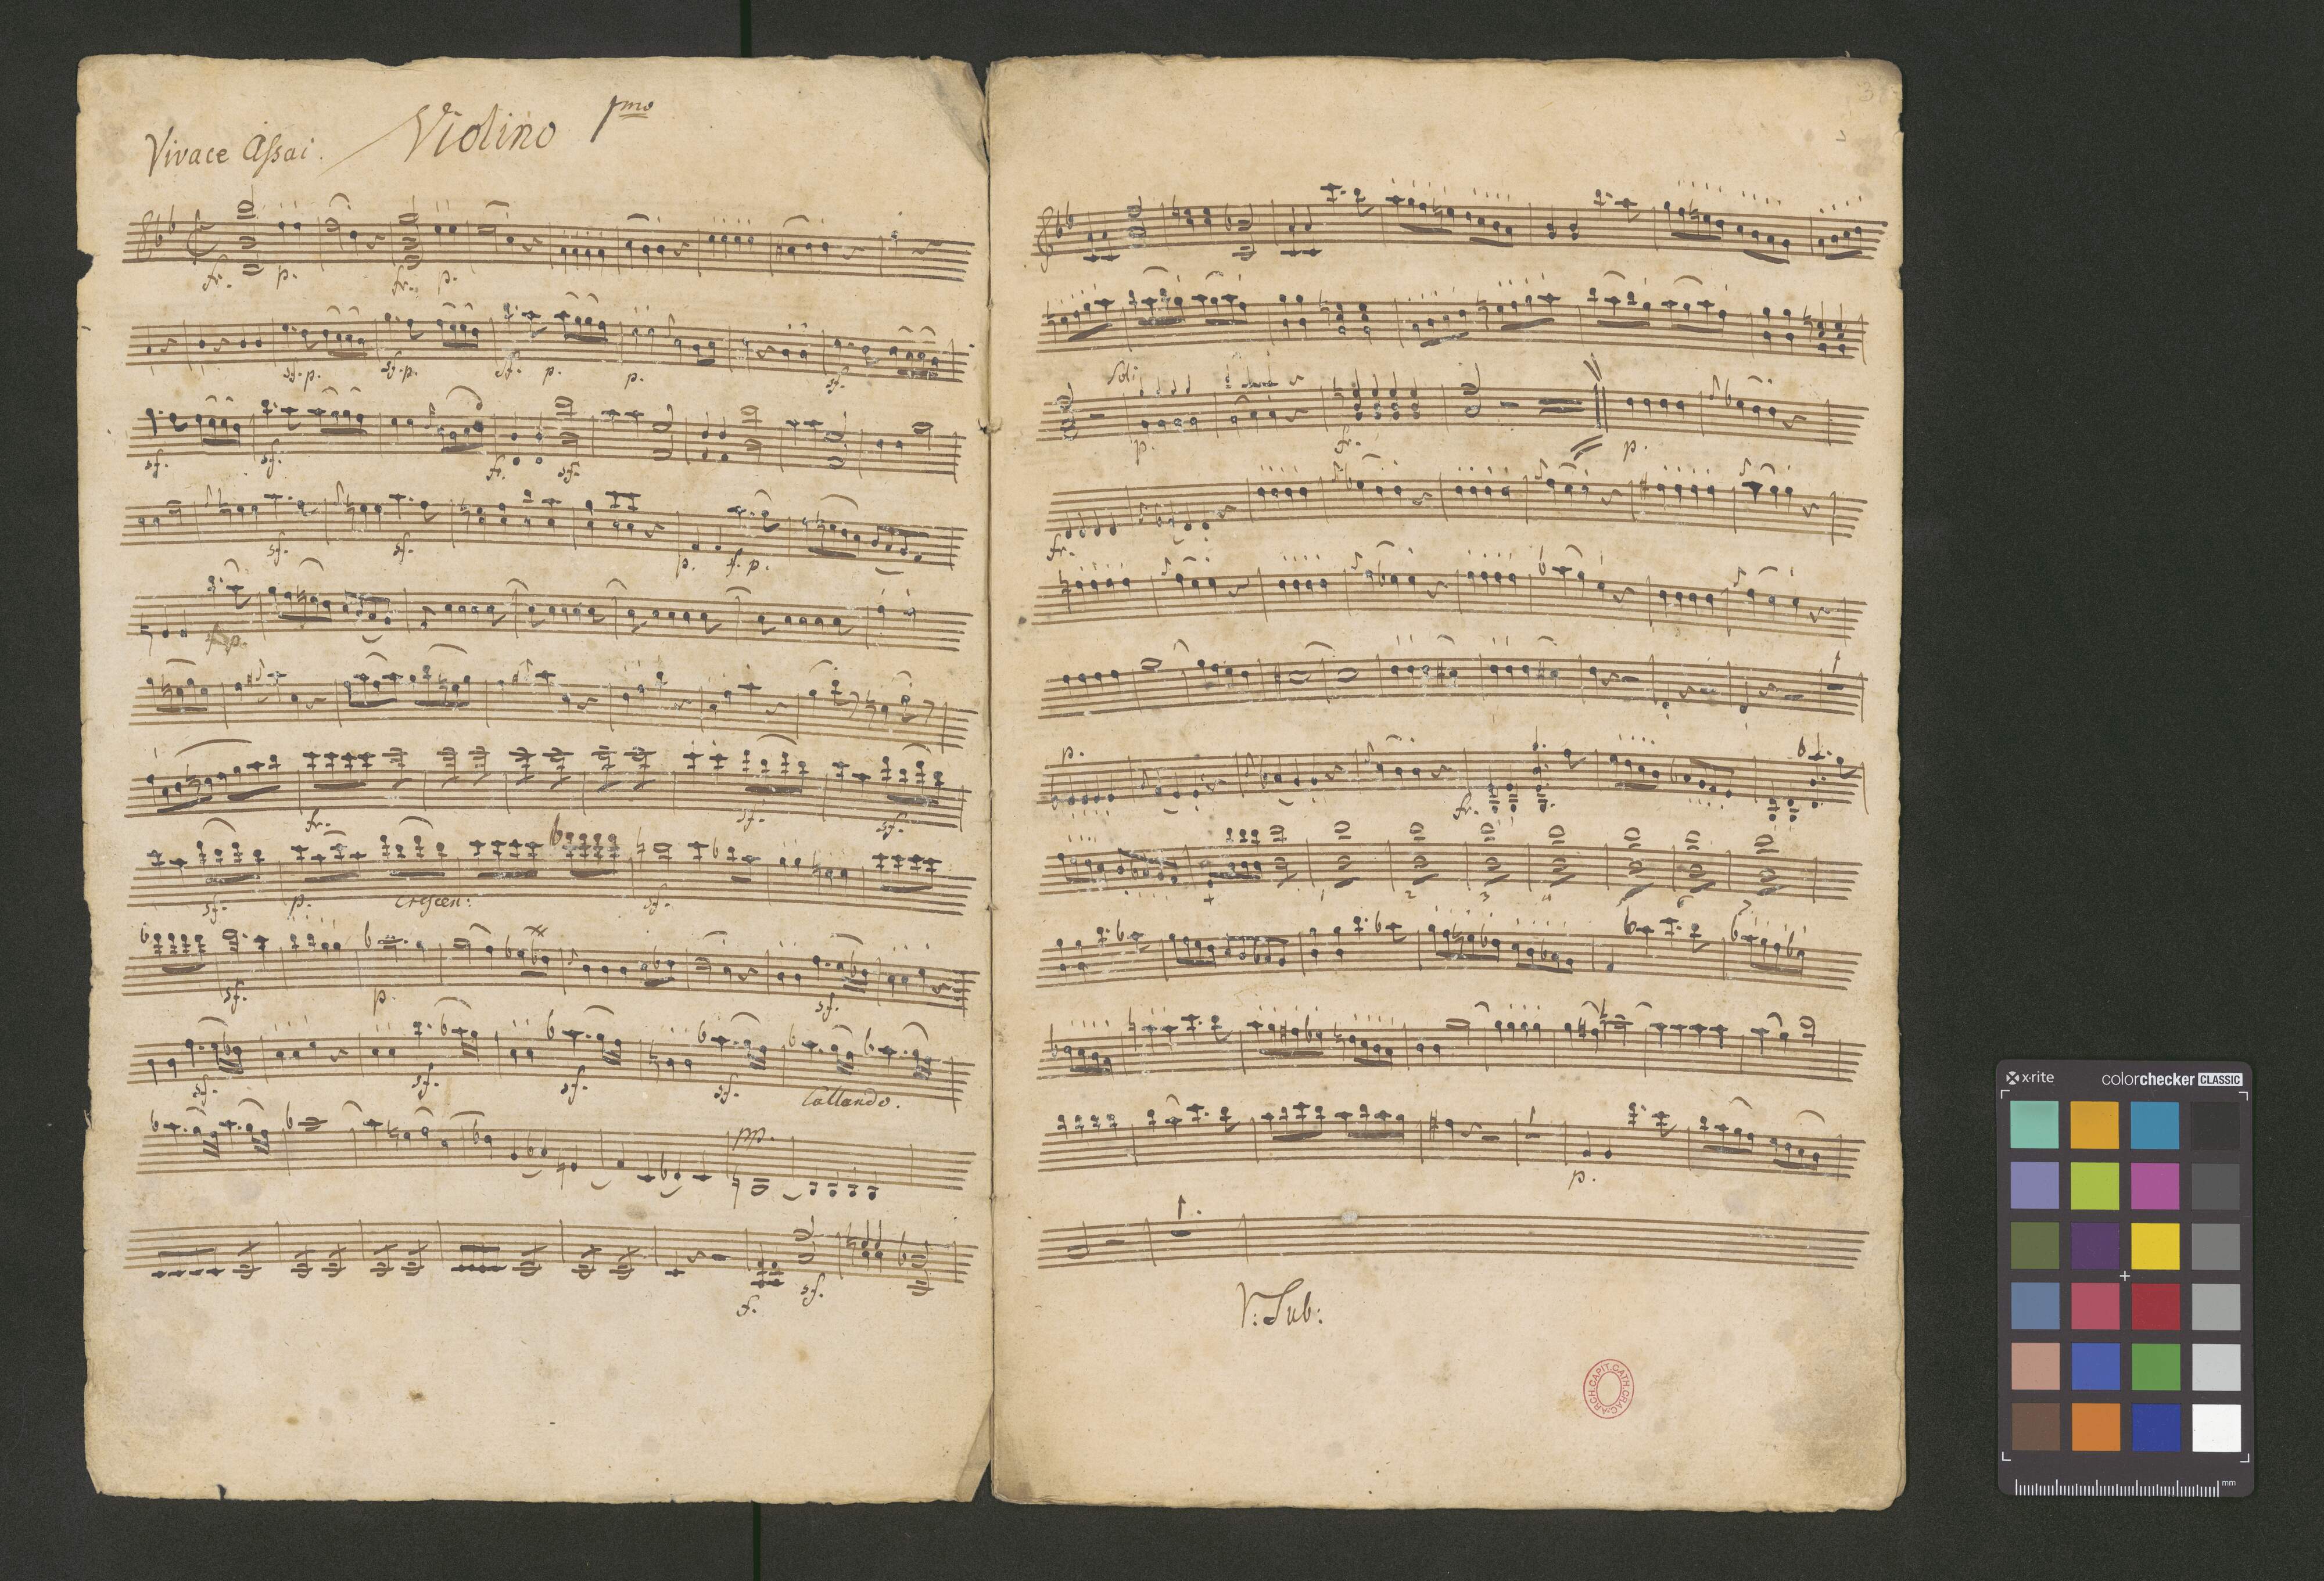 Violino 1mo
Vivace Aſsai.
fr. p. fr. p.
sf. p. sf. p. sf. p. p. sf.
sf. sf. fr. sf.
sf. sf. p. f. p.
fr. sf. sf.
sf. p. Creſcen: sf.
sf. p. sf.
sf. sf. sf. sf. Callando.
pp.
f. sf.
3
Soli
p. fr. p.
fr.
p.
fr.
1 2 3 4 5 6 7
p.
1.
V: Sub:
ARCH.CAPIT.CATH.CRAC.
x-rite colorchecker CLASSIC
mm